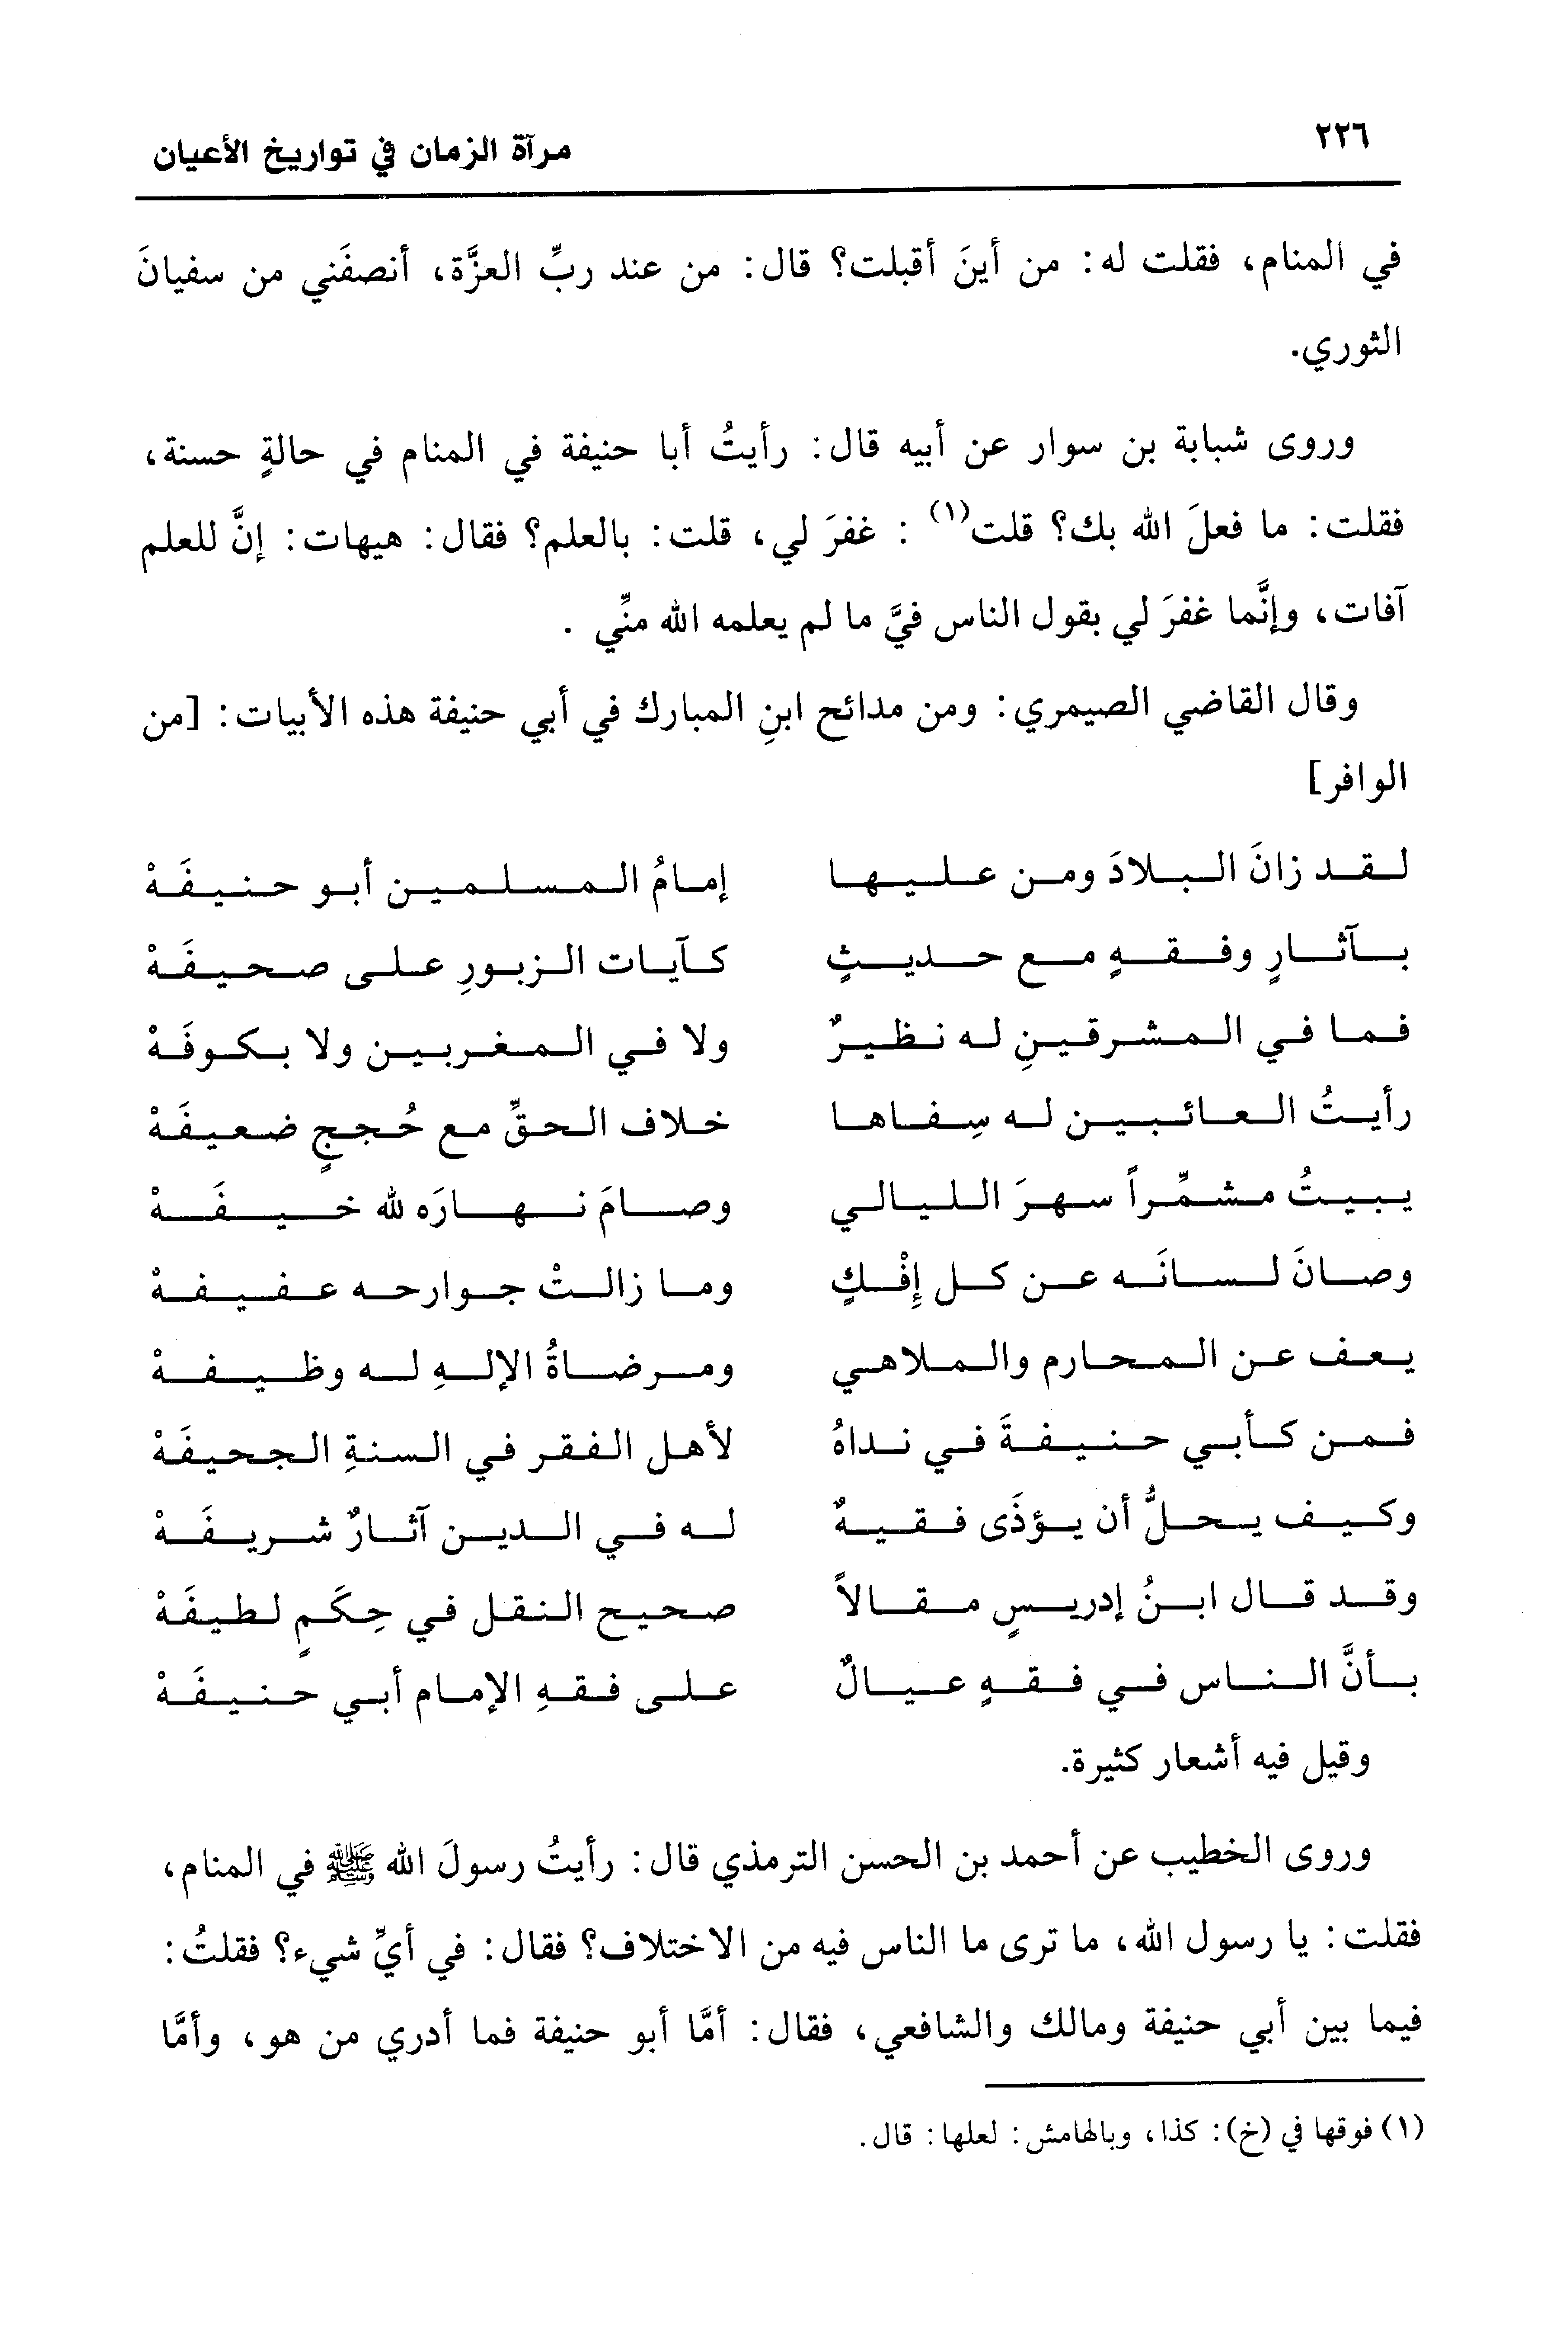 ٢٢٦
مرآة الزمان في تواريخ الأعيان
في المنام، فقلت له: من أينَ أقبلت؟ قال: من عند ربِّ العزَّة، أنصفَني من سفيانَ
الثوري.
وروى شبابة بن سوار عن أبيه قال: رأيتُ أبا حنيفة في المنام في حالةٍ حسنة،
فقلت: ما فعلَ الله بك؟ قلت(١) : غفرَ لي، قلت: بالعلم؟ فقال: هيهات: إنَّ للعلم
آفات، وإنَّما غفرَ لي بقول الناس فيَّ ما لم يعلمه الله منِّي .
وقال القاضي الصيمري: ومن مدائح ابنِ المبارك في أبي حنيفة هذه الأبيات: [من
الوافر]
لقد زانَ البلادَ ومن عليها إمامُ المسلمين أبو حنيفَهْ
بآثارٍ وفقهٍ مع حديثٍ كآيات الزبورِ على صحيفَهْ
فما في المشرقينِ له نظيرٌ ولا في المغربين ولا بكوفَهْ
رأيتُ العائبين له سِفاها خلاف الحقِّ مع حُججٍ ضعيفَهْ
يبيتُ مشمِّراً سهرَ الليالي وصامَ نهارَه لله خيفَهْ
وصانَ لسانَه عن كل إِفْكٍ وما زالتْ جوارحه عفيفهْ
يعف عن المحارم والملاهي ومرضاةُ الإلهِ له وظيفهْ
فمن كأبي حنيفةَ في نداهُ لأهل الفقر في السنةِ الجحيفَهْ
وكيف يحلُّ أن يؤذَى فقيهٌ له في الدين آثارٌ شريفَهْ
وقد قال ابنُ إدريسٍ مقالاً صحيح النقل في حِكَمٍ لطيفَهْ
بأنَّ الناس في فقهٍ عيالٌ على فقهِ الإمام أبي حنيفَهْ
وقيل فيه أشعار كثيرة.
وروى الخطيب عن أحمد بن الحسن الترمذي قال: رأيتُ رسولَ الله ﷺ في المنام،
فقلت: يا رسول الله، ما ترى ما الناس فيه من الاختلاف؟ فقال: في أيِّ شيء؟ فقلتُ:
فيما بين أبي حنيفة ومالك والشافعي، فقال: أمَّا أبو حنيفة فما أدري من هو، وأمَّا
(١) فوقها في (خ): كذا، وبالهامش: لعلها: قال.